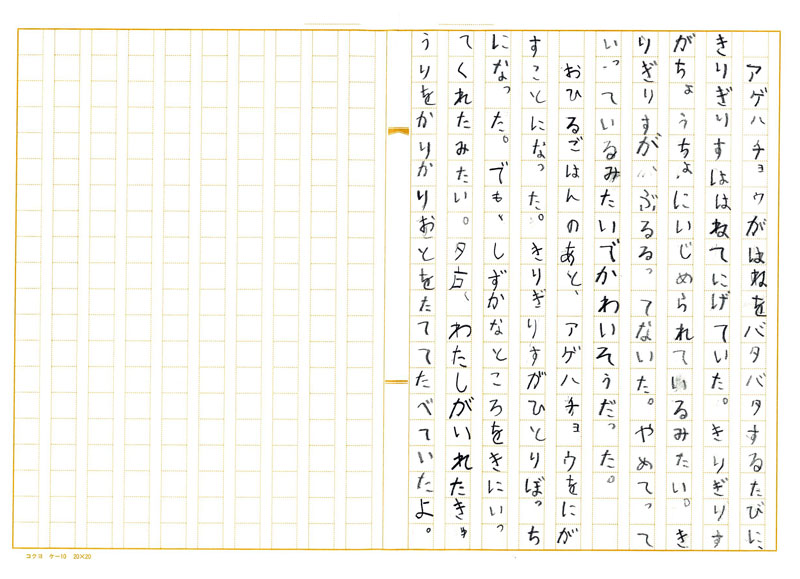 アゲハチョウがはねをバタバタするたびに、
きりぎりすははねてにげていた。きりぎりす
がちょうちょにいじめられているみたい。き
りぎりすが、ぶるるってないた。やめてって
いっているみたいでかわいそうだった。
おひるごはんのあと、アゲハチョウをにが
すことになった。きりぎりすがひとりぼっち
になった。でも、しずかなところをきにいっ
てくれたみたい。夕方、わたしがいれたきゅ
うりをかりかりおとをたててたべていたよ。
コクヨ ケー10 20×20